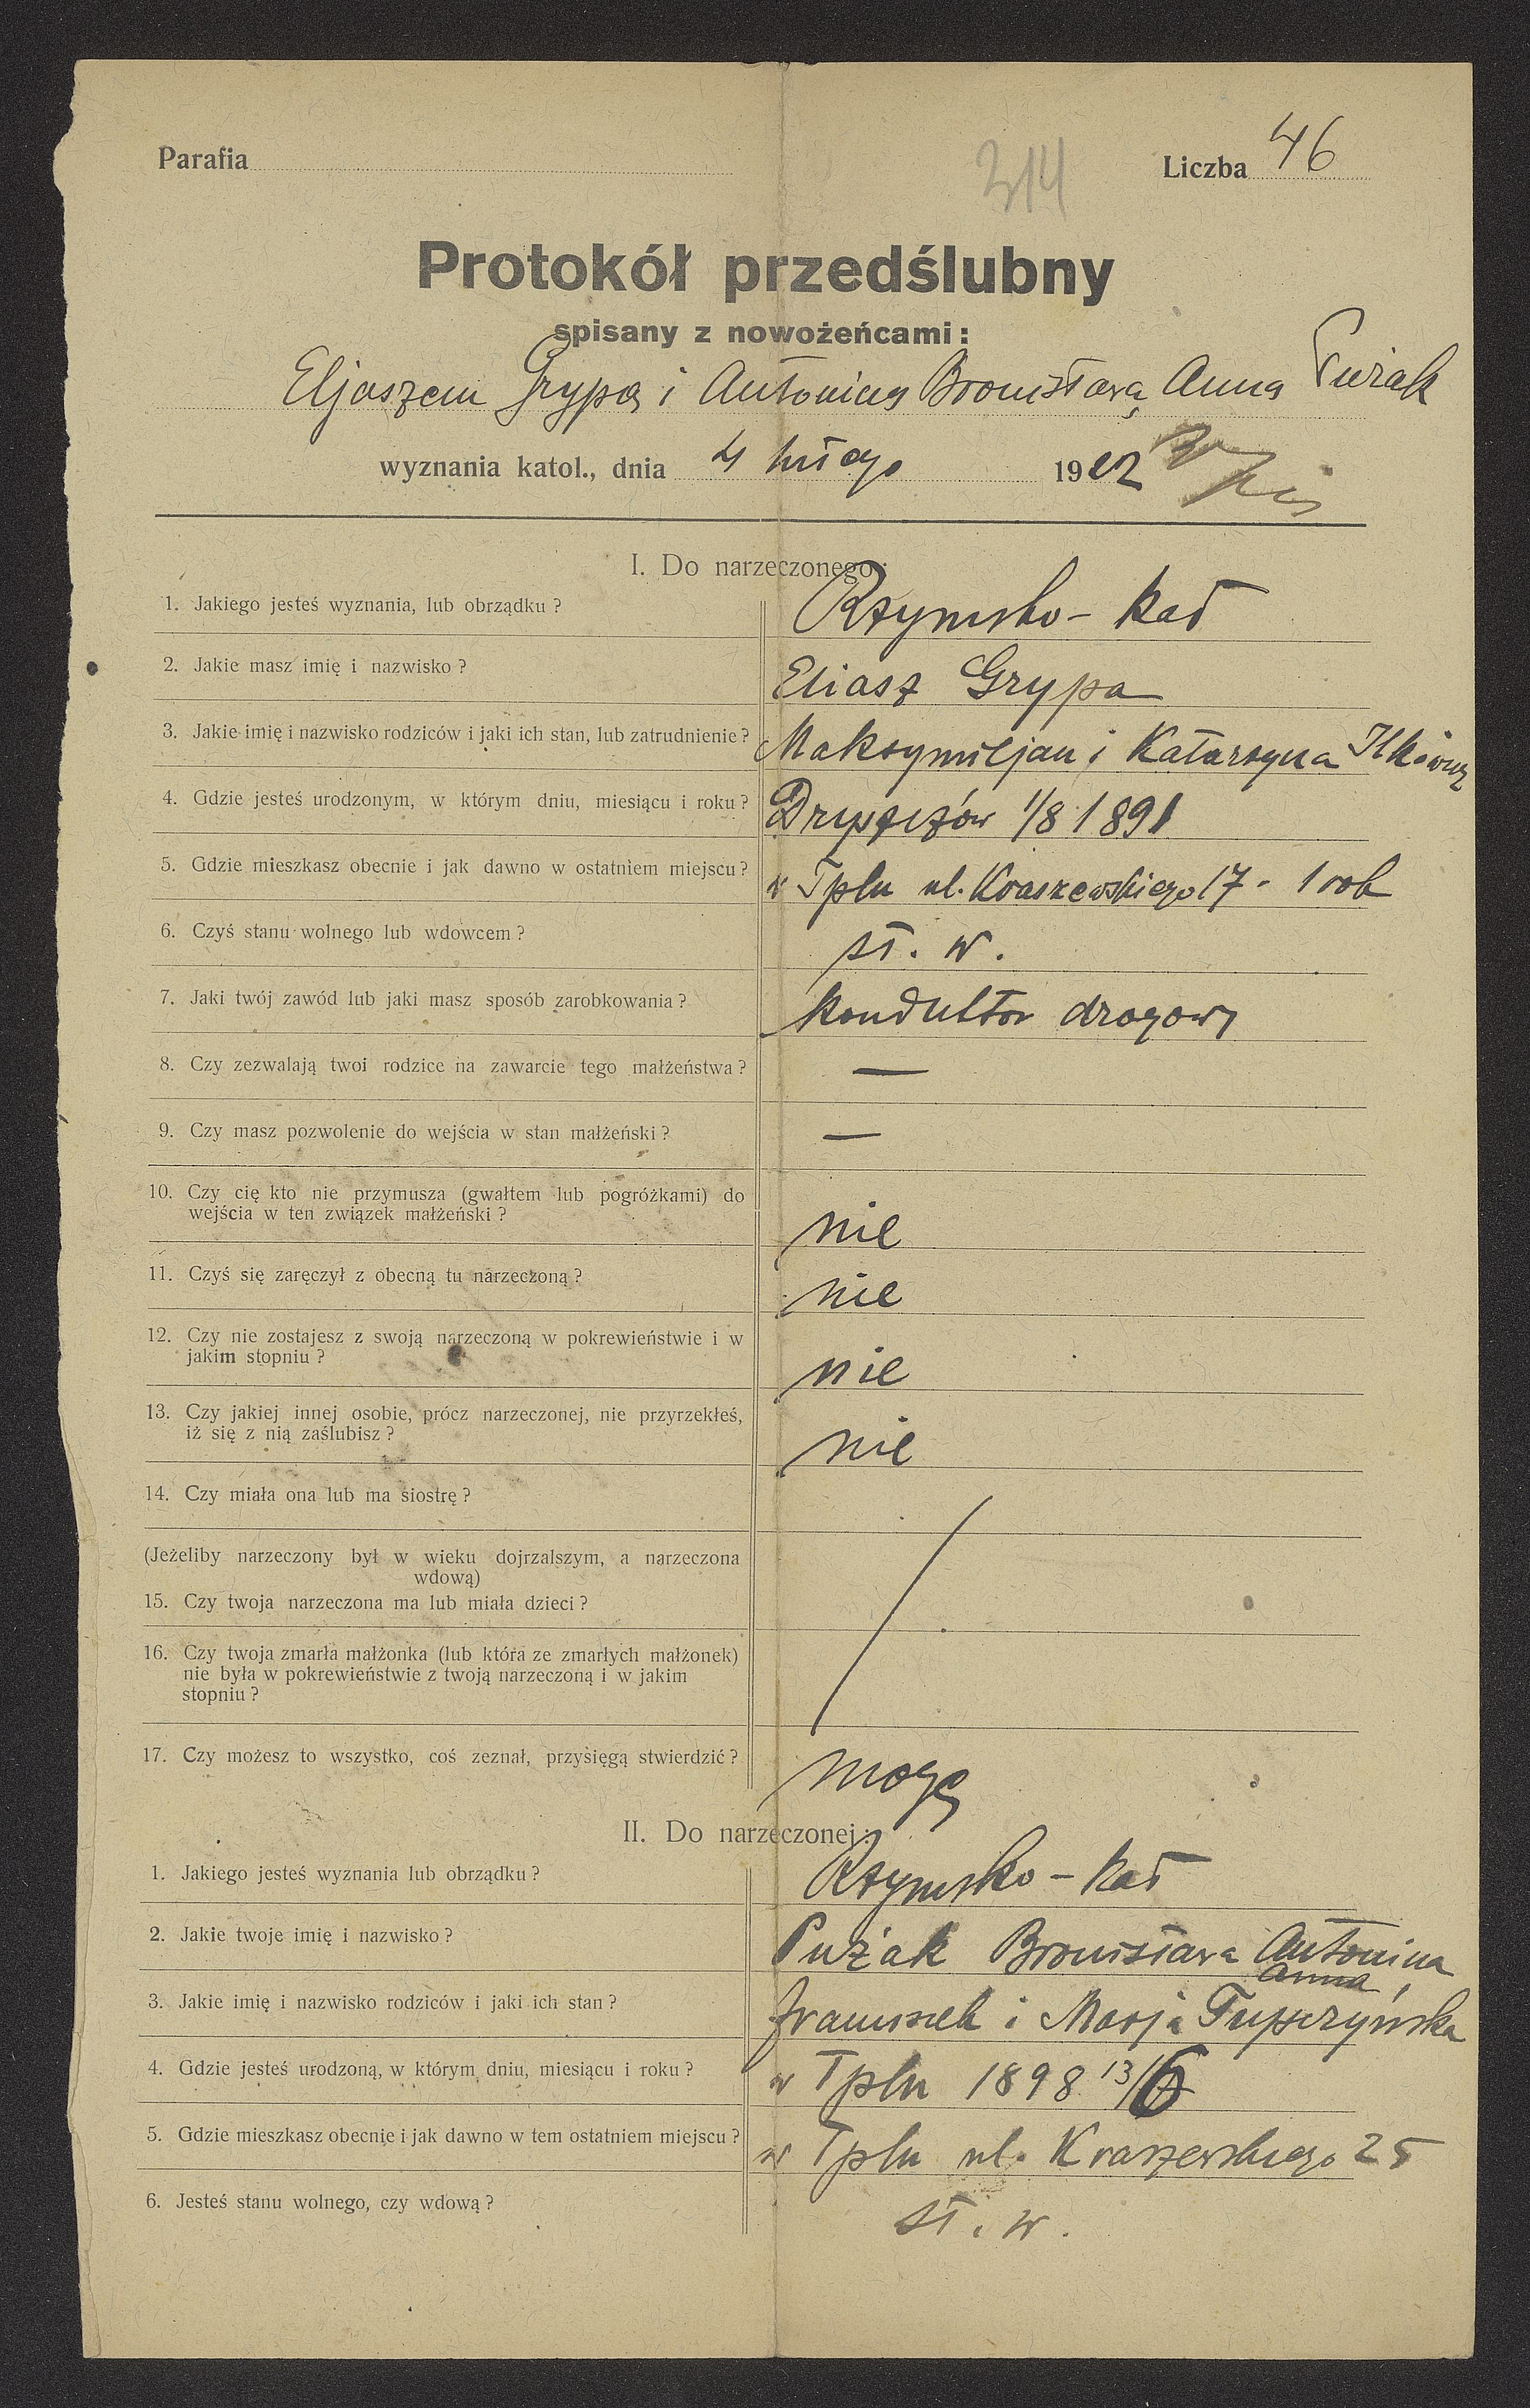 Parafia
314
Liczba 46
Protokół przedślubny
spisany z nowożeńcami:
Eljaszem Grypą i Antoniną Bronisławą Anną Pużak
wyznania katol., dnia 4 lutego 1922
I. Do narzeczonego:
1. Jakiego jesteś wyznania, lub obrządku? Rzymsko - kat
2. Jakie masz imię i nazwisko? Eliasz Grypa
3. Jakie imię i nazwisko rodziców i jaki ich stan, lub zatrudnienie? Maksymiljan i Katarzyna
4. Gdzie jesteś urodzonym, w którym dniu, miesiącu i roku? 1/8 1891
5. Gdzie mieszkasz obecnie i jak dawno w ostatniem miejscu? w Tplu ul. Kraszewskiego 17 - 1 rok
6. Czyś stanu wolnego lub wdowcem? st. w.
7. Jaki twój zawód lub jaki masz sposób zarobkowania? konduktor drogowy
8. Czy zezwalają twoi rodzice na zawarcie tego małżeństwa? —
9. Czy masz pozwolenie do wejścia w stan małżeński? —
10. Czy cię kto nie przymusza (gwałtem lub pogróżkami) do
wejścia w ten związek małżeński? nie
11. Czyś się zaręczył z obecną tu narzeczoną? nie
12. Czy nie zostajesz z swoją narzeczoną w pokrewieństwie i w
jakim stopniu? nie
13. Czy jakiej innej osobie, prócz narzeczonej, nie przyrzekłeś,
iż się z nią zaślubisz? nie
14. Czy miała ona lub ma siostrę?
(Jeżeliby narzeczony był w wieku dojrzalszym, a narzeczona
wdową)
15. Czy twoja narzeczona ma lub miała dzieci?
16. Czy twoja zmarła małżonka (lub która ze zmarłych małżonek)
nie była w pokrewieństwie z twoją narzeczoną i w jakim
stopniu?
17. Czy możesz to wszystko, coś zeznał, przysięgą stwierdzić? mogę
II. Do narzeczonej:
1. Jakiego jesteś wyznania lub obrządku? Rzymsko - kat
2. Jakie twoje imię i nazwisko? Pużak Bronisława Antonina
Anna
3. Jakie imię i nazwisko rodziców i jaki ich stan? Franciszek i Marja
4. Gdzie jesteś urodzoną, w którym dniu, miesiącu i roku? w Tplu 1898 13/6
5. Gdzie mieszkasz obecnie i jak dawno w tem ostatniem miejscu? w Tplu ul. Kraszewskiego 25
6. Jesteś stanu wolnego, czy wdową? st. w.